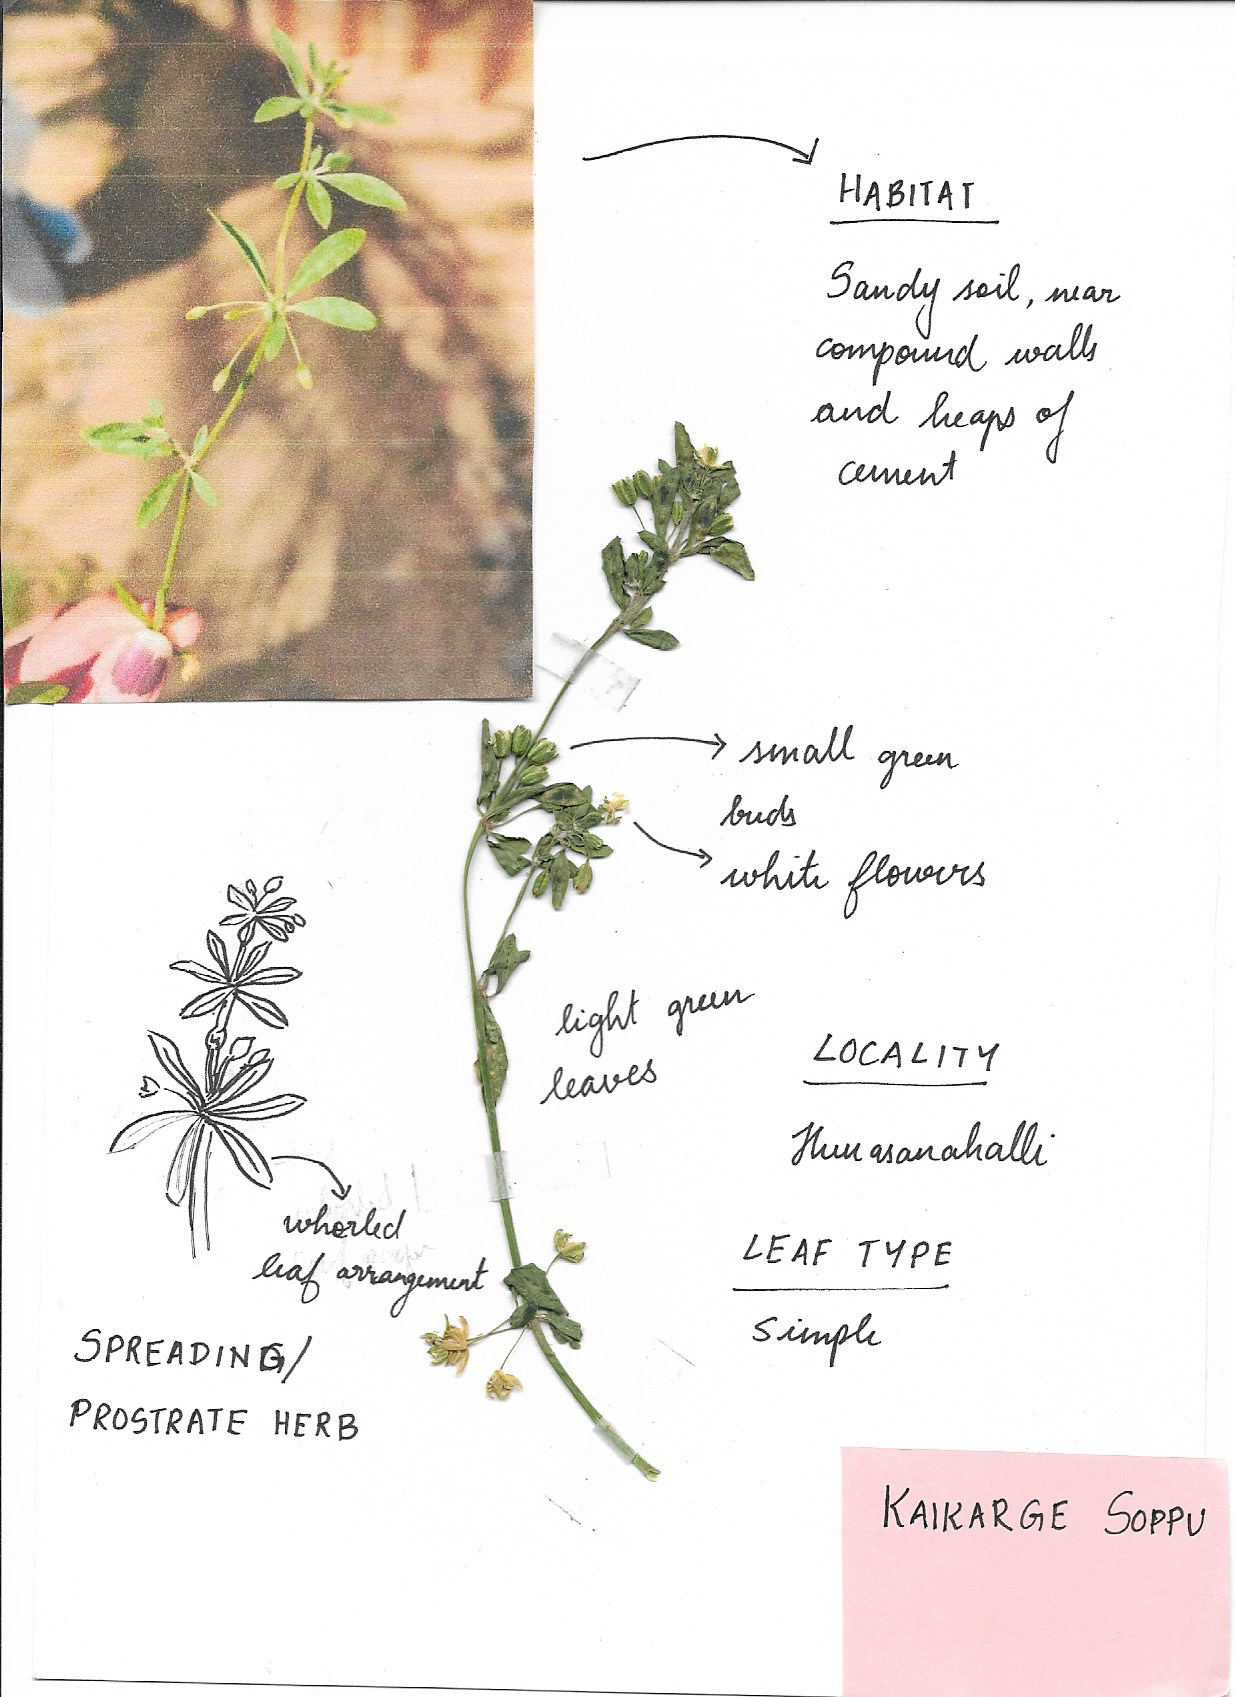 HABITAT
Sandy soil, near
compound walls
and heaps of
cement
small green
buds
white flowers
light green
leaves
LOCALITY
Hunasanahalli
whorled
leaf arrangement
LEAF TYPE
Simple
SPREADING/
PROSTRATE HERB
KAIKARGE SOPPU